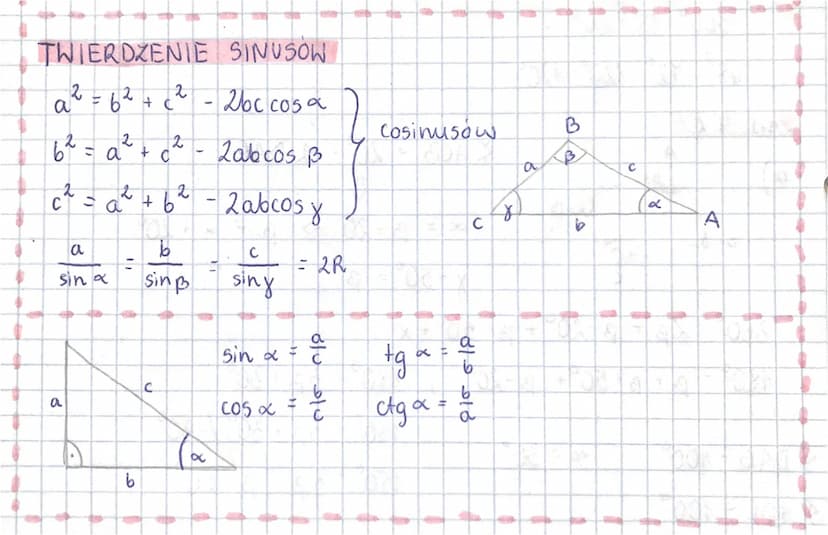 TWIERDZENIE SINUSÓW
a² = b² + c² - 2bc cos α
b² = a² + c² - 2abcos β
c² = a² + b² - 2abcos γ
cosinusów
B
a β c
C γ b α A
a/sin α = b/sin β = c/sin γ = 2R
sin α = a/c tg α = a/b
cos α = b/c ctg α = b/a
a c
α
b